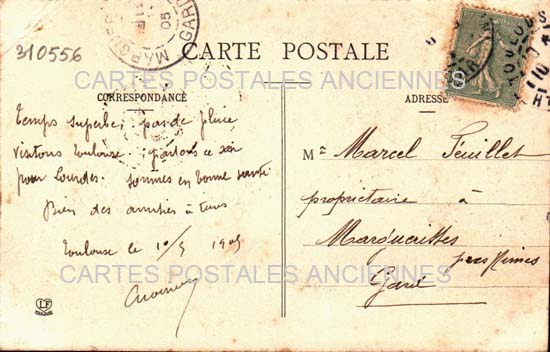 310556
MARGUER
GARD
05
TOULOUSE
10
CARTE POSTALE
CARTES POSTALES ANCIENNES
CORRESPONDANCE
ADRESSE
Temps superbe, pas de pluie
visitons Toulouse, partons ce soir
pour Lourdes. Sommes en bonne santé
Bien des amitiés à tous
Toulouse le 10/5 1905
Mr Marcel Feuillet
propriétaire à
Marguerittes
près Nimes
Gard
CARTES POSTALES ANCIENNES
LF